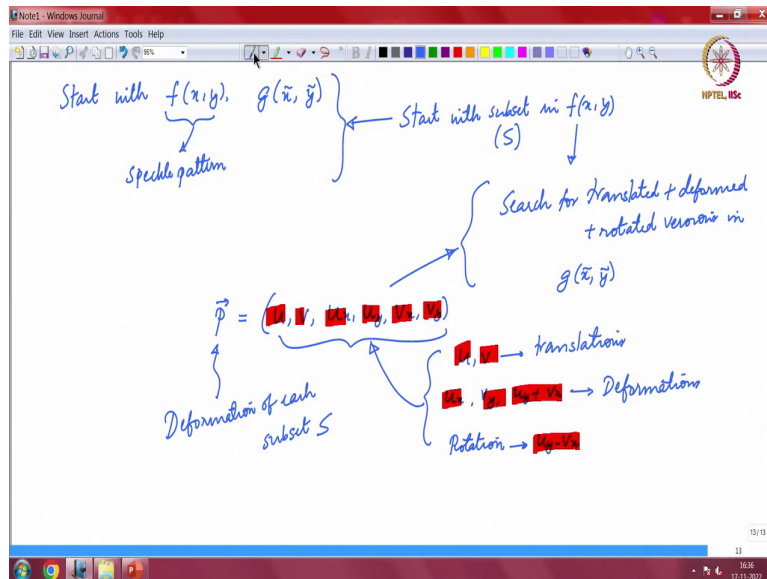 Note1 - Windows Journal
File Edit View Insert Actions Tools Help
96%
NPTEL, IISc
Start with f(x, y), g(x̃, ỹ)
Speckle pattern
Start with subset in f(x, y)
(S)
Search for translated + deformed
+ rotated verovoin in
g(x̃, ỹ)
p⃗ = (u, v, ux, uy, vx, vy)
Deformation of each
subset S
u, v → translations
ux, vy, uy + vx → Deformations
Rotation → uy - vx
13/13
13
16:36
17-11-2022